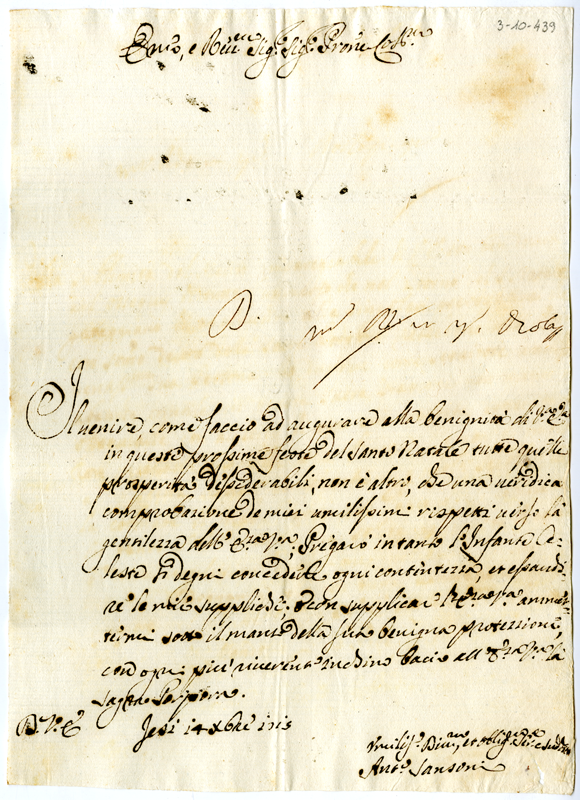 3-10-439
Em̃o, e Rm̃o Sig.r Sig.r Prone Col.mo
R.
Il venire come faccio ad augurare alla benignità di V.ra Em.za
in queste prossime feste del Santo Natale tutte quelle
prosperità desiderabili, non è altro, che una veridica
comprobazione de miei umilissimi rispetti verso la
gentilezza dell' Em.za V.ra, Pregarò intanto l'Infante Ce-
leste si degni concederle ogni contintezza, et essaudi-
re le mie suppliche; con supplicar l'Em.za V.ra ammet-
termi sotto il manto della sua benigna protezzione,
con ogni più riverente inchino bacio all' Em.za V.ra la
Sagra Porpora.
D. V. E.
Jesi 14 Xbre 1715
Umiliss.o Divm.o et oblig.mo
Ant.o Sansoni